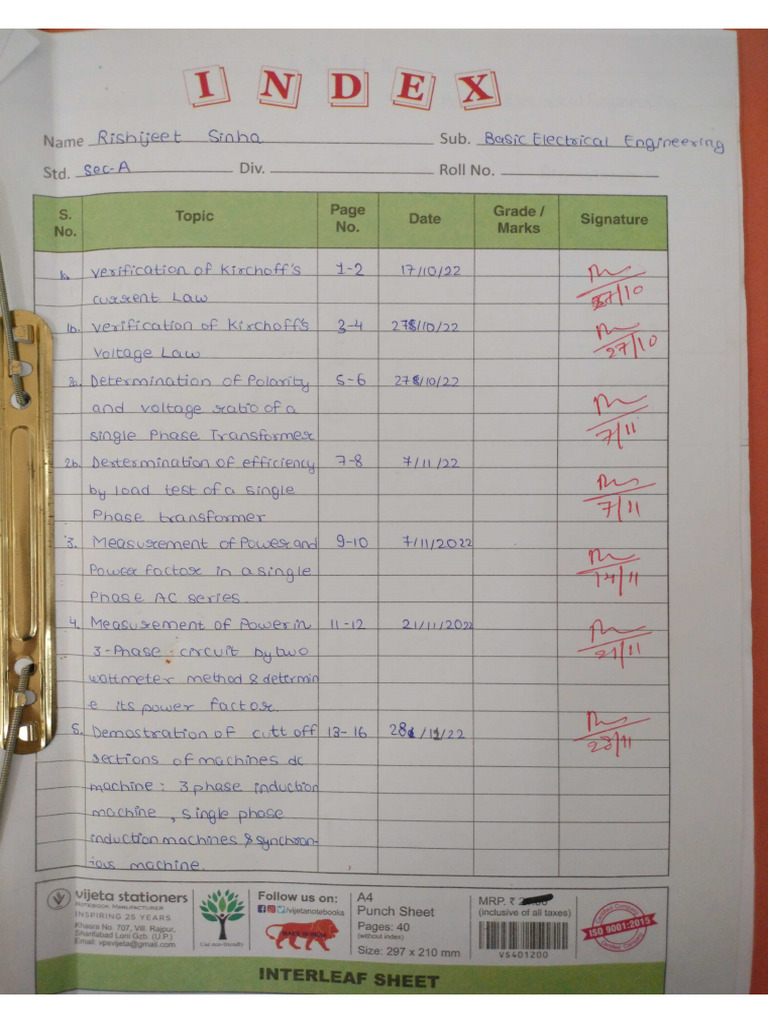 INDEX
Name Rishijeet Sinha Sub. Basic Electrical Engineering
Std. Sec-A Div. Roll No.
S. No. Topic Page No. Date Grade / Marks Signature
Verification of Kirchoff's 1-2 17/10/22
current Law 27/10
1b. Verification of Kirchoff's 3-4 27/10/22
Voltage Law 27/10
2a. Determination of Polarity 5-6 27/10/22
and voltage ratio of a
single Phase Transformer 7/11
2b. Dertermination of efficiency 7-8 7/11/22
by load test of a single
Phase transformer 7/11
3. Measurement of Power and 9-10 7/11/2022
Power factor in a single 14/11
Phase AC series.
4. Measurement of Power in 11-12 21/11/2022
3-Phase circuit by two 21/11
wattmeter method & determin
e its power factor.
5. Demostration of cutt off 13-16 28/11/22
sections of machines dc 28/11
machine: 3 phase induction
machine, single phase
induction machines & synchron-
ious machine.
vijeta stationers
NOTEBOOK MANUFACTURER
INSPIRING 25 YEARS
Khasra No. 707, Vill. Rajpur,
Sharifabad Loni Gzb. (U.P.)
Email: vpsvijeta@gmail.com
Use eco-friendly
Follow us on:
/vijetanotebooks
MAKE IN INDIA
A4
Punch Sheet
Pages: 40
(without index)
Size: 297 x 210 mm
MRP. ₹
(inclusive of all taxes)
VS401200
ISO 9001:2015
INTERLEAF SHEET